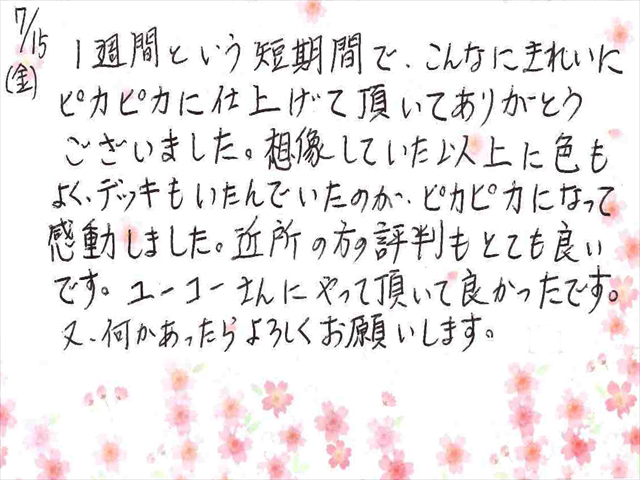 7/15
(金)
1週間という短期間で、こんなにきれいに
ピカピカに仕上げて頂いてありがとう
ございました。想像していた以上に色も
よく、デッキもいたんでいたのが、ピカピカになって
感動しました。近所の方の評判もとても良い
です。ユーコーさんにやって頂いて良かったです。
又、何かあったらよろしくお願いします。